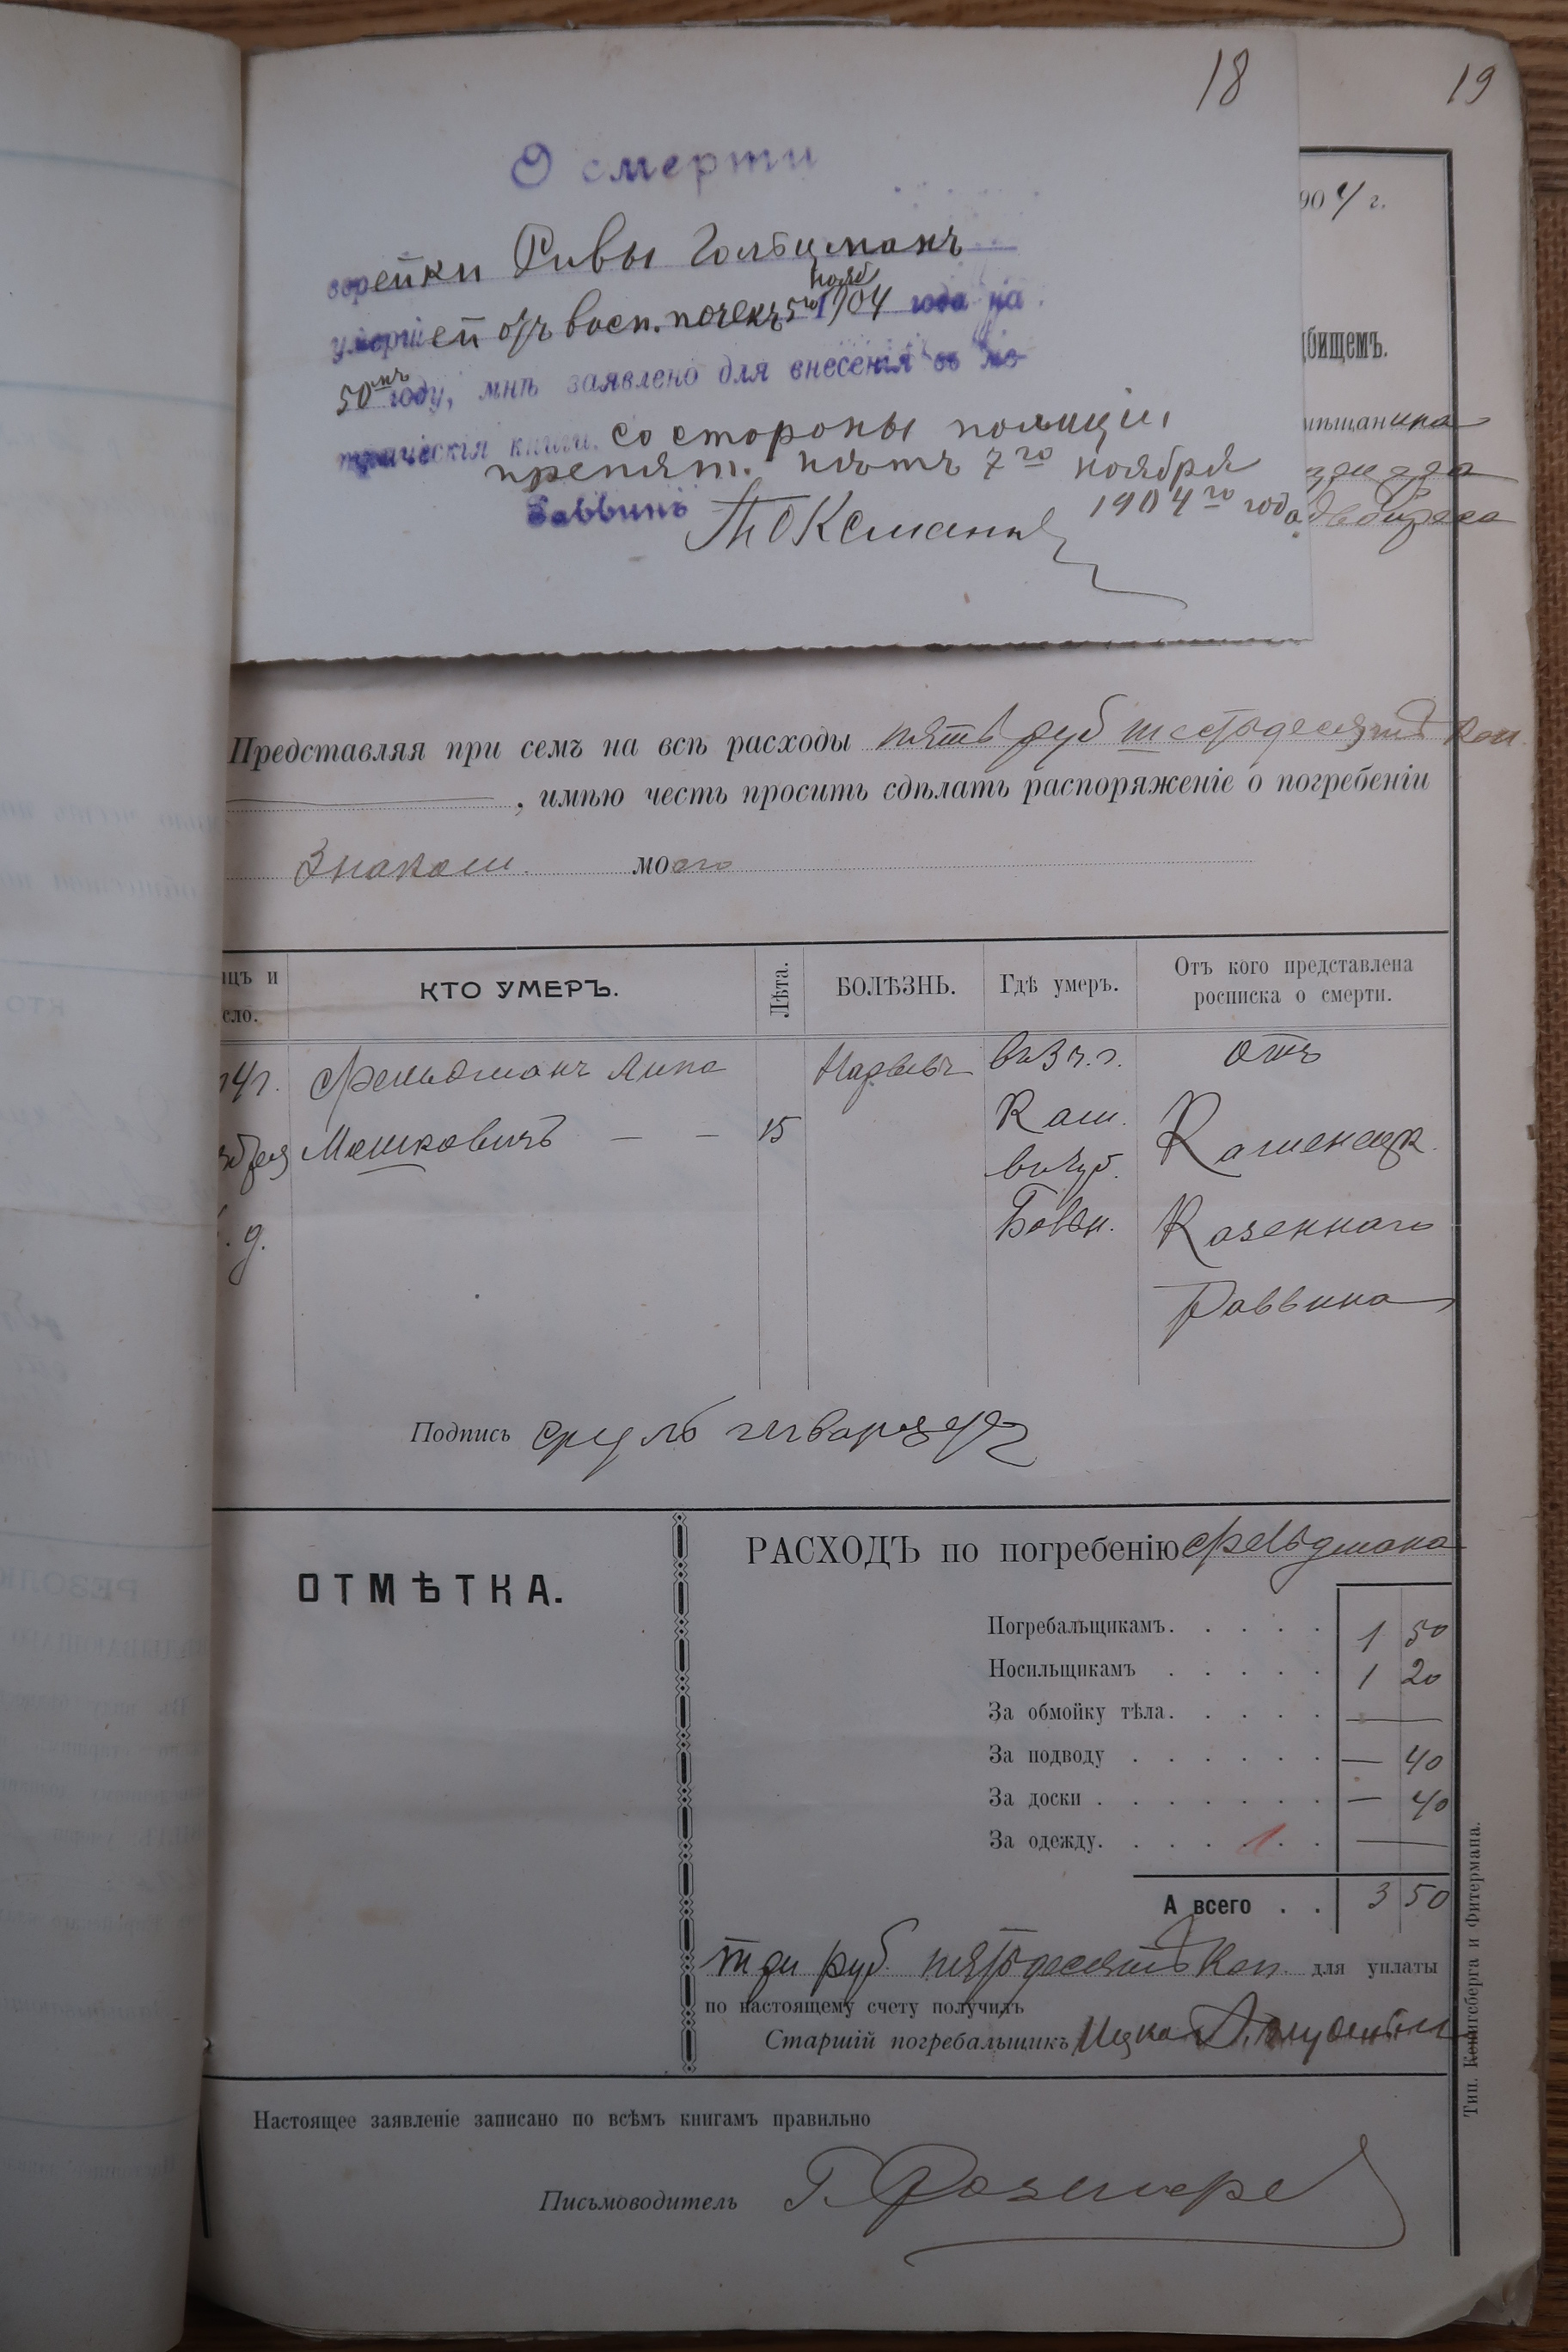 18
19
О смерти
еврейки Ривы Гольцманъ
нояб
умершей отъ восп. почекъ 5го 1904 года на
50мъ году, мнѣ заявлено для внесенія въ ме-
трическія книги. Со стороны полиціи
препят. нѣтъ 7го ноября
1904го года
Раввинъ
904 г.
дбищемъ.
мѣщанина
Представляя при семъ на всѣ расходы пять руб шестьдесятъ коп
, имѣю честь просить сдѣлать распоряженіе о погребеніи
Знаком. моего
яцъ и
сло.
КТО УМЕРЪ.
Лѣта.
БОЛѢЗНЬ.
Гдѣ умеръ.
Отъ кого представлена
росписка о смерти.
04г. Фельдманъ Липа Нарывъ въ 3 ч. г. Отъ
ября Мошковичъ — — 15 Кам. Каменецк.
въ губ.
д. Казеннаго
Раввина
Подпись сруль шварцъ
ОТМѢТКА.
РАСХОДЪ по погребенію фельдмана
Погребальщикамъ. . . . . 1 50
Носильщикамъ . . . . . 1 20
За обмойку тѣла. . . . . —
За подводу . . . . . . — 40
За доски . . . . . . . — 40
За одежду. . . . . . —
А всего . . 3 50
три руб. пятьдесятъ коп. для уплаты
по настоящему счету получилъ
Старшій погребальщикъ Ицко
Тип. Кенигсберга и Фитермана.
Настоящее заявленіе записано по всѣмъ книгамъ правильно
Письмоводитель Г. Розенбере